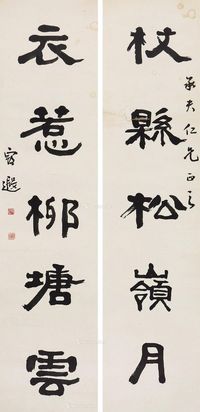 杖縣松嶺月
承夫仁兄正之
衣惹柳塘雲
霞遐